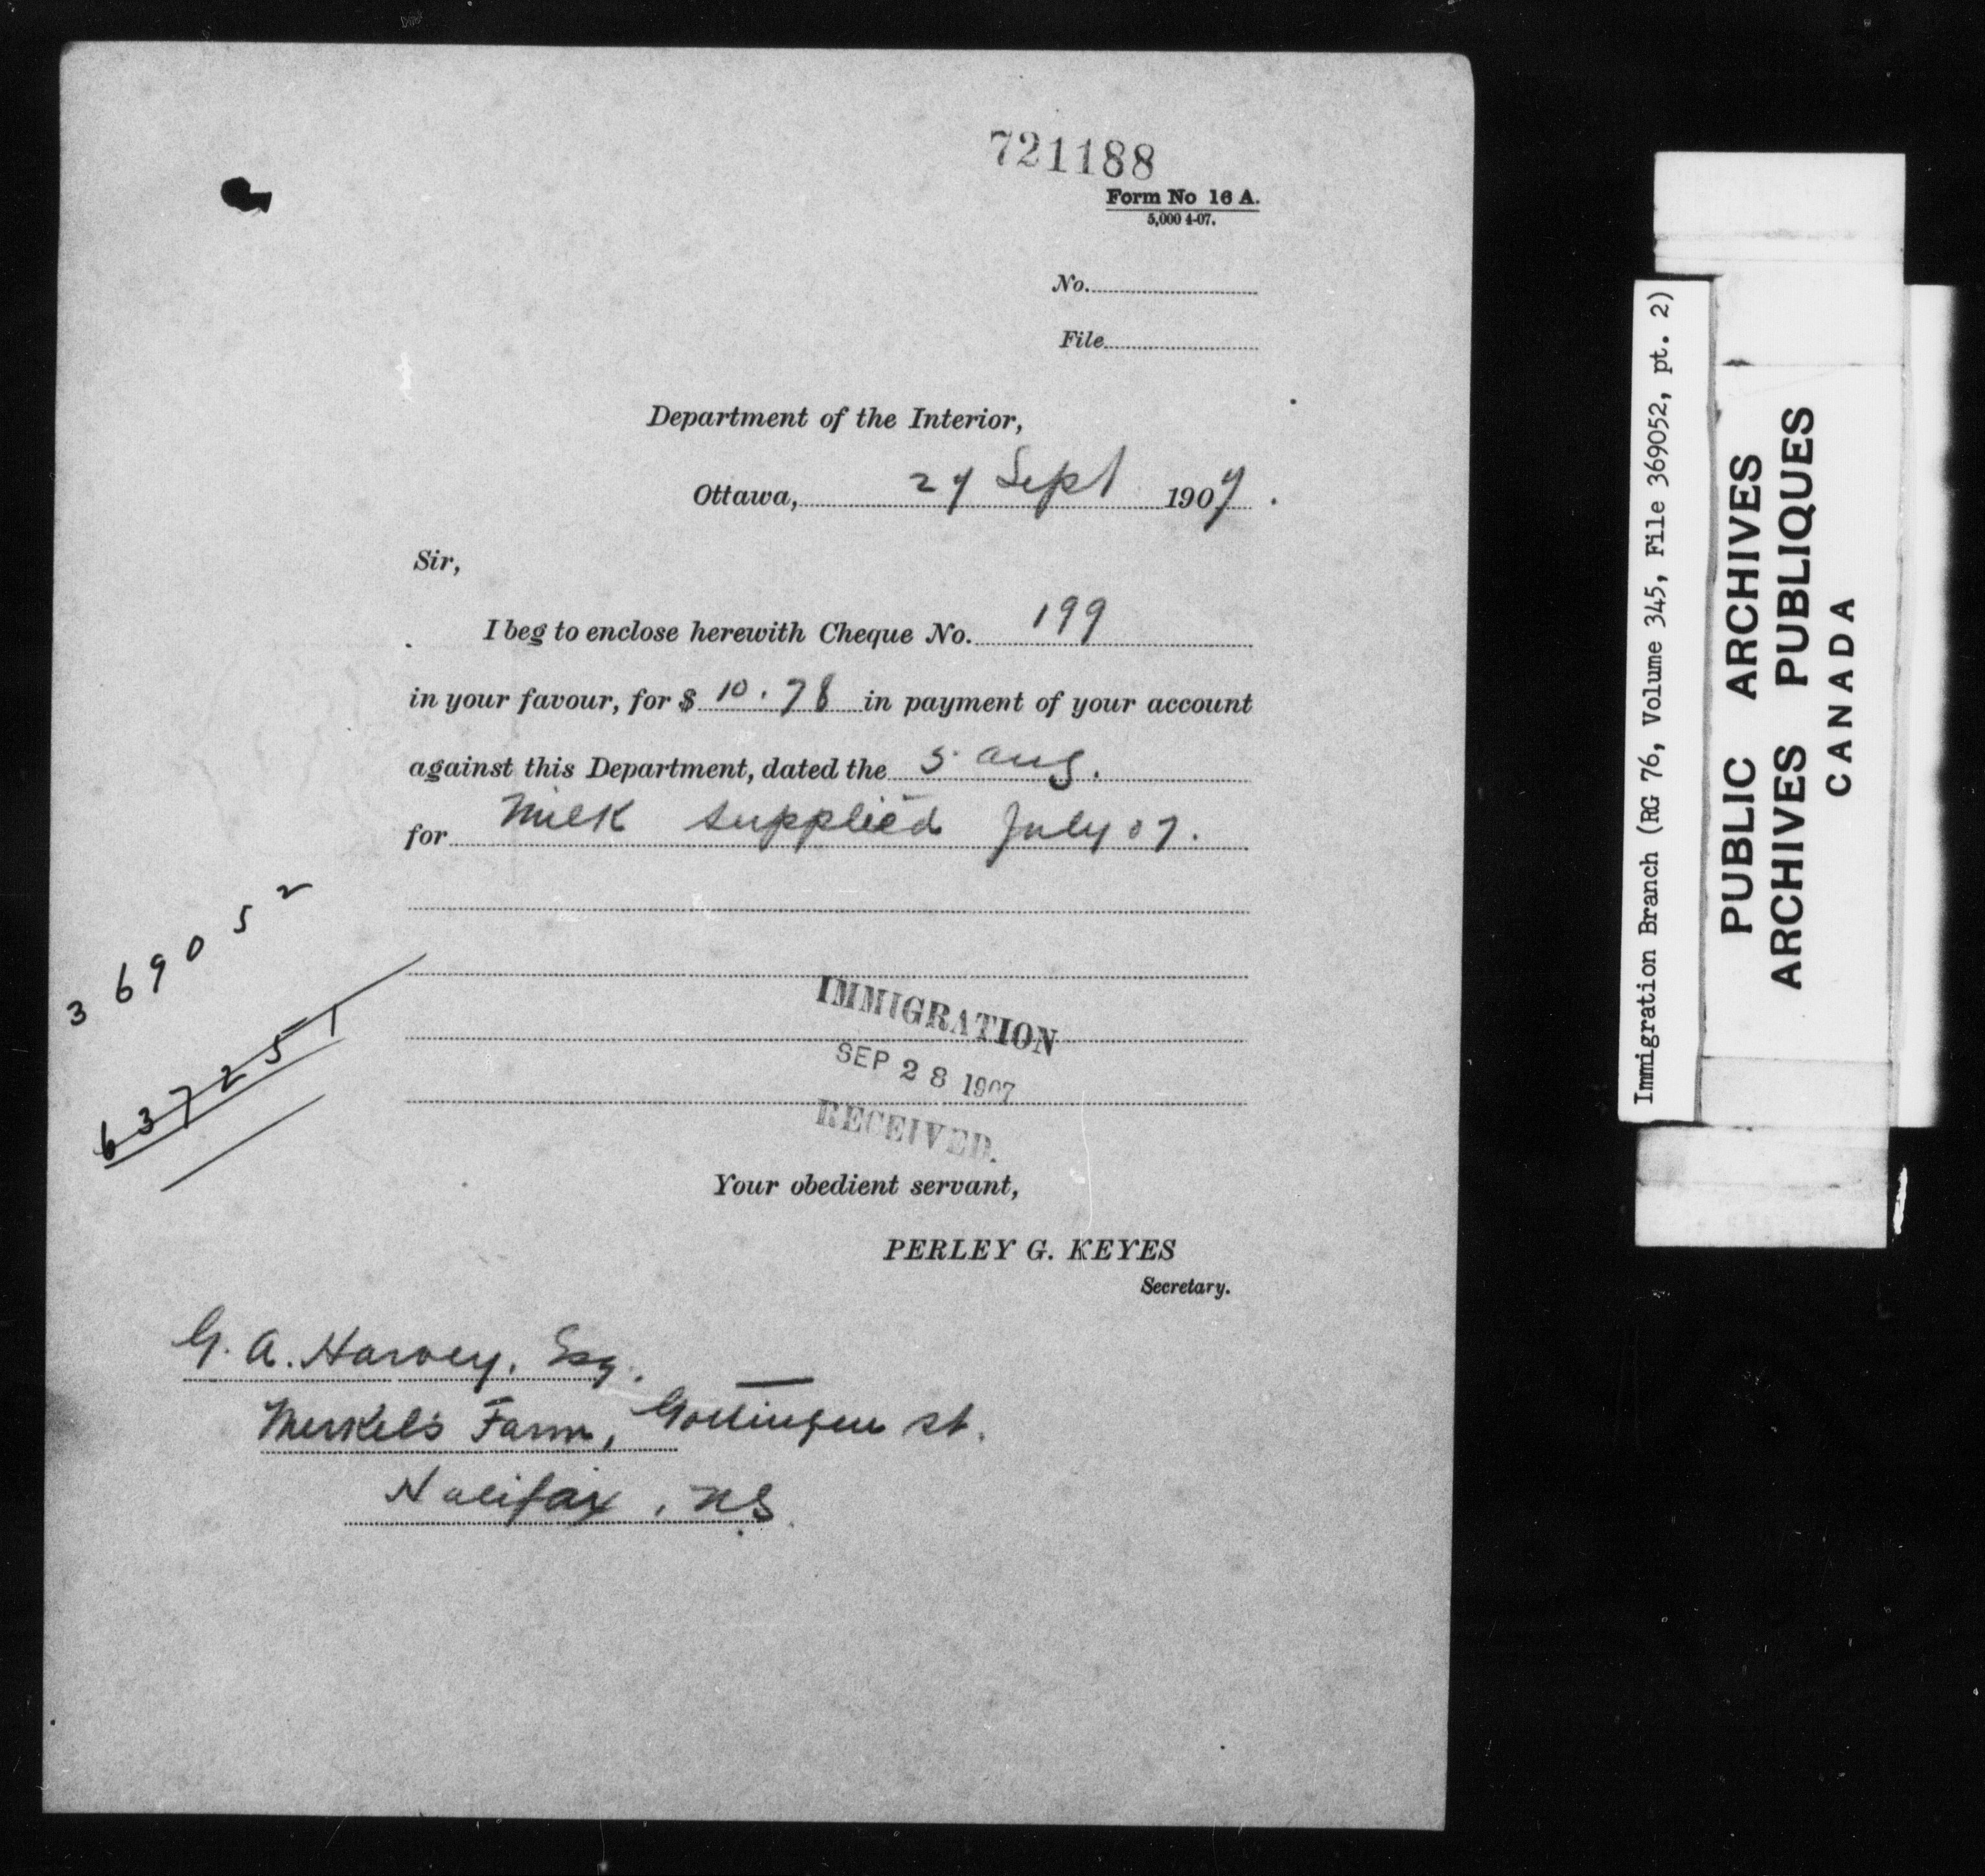 721188
Form No 16 A.
5,000 4-07.
No.
File
Department of the Interior,
Ottawa, 27 Sept 1907.
Sir,
I beg to enclose herewith Cheque No. 199
in your favour, for $ 10.78 in payment of your account
against this Department, dated the 5 Aug.
for Milk supplied July 07.
369052
637251
IMMIGRATION
SEP 28 1907
RECEIVED.
Your obedient servant,
PERLEY G. KEYES
Secretary.
G. A. Harvey, Esq.
Merkel's Farm, Gottingen St.
Halifax, N.S.
Immigration Branch (RG 76, Volume 345, File 369052, pt. 2)
PUBLIC ARCHIVES
ARCHIVES PUBLIQUES
CANADA